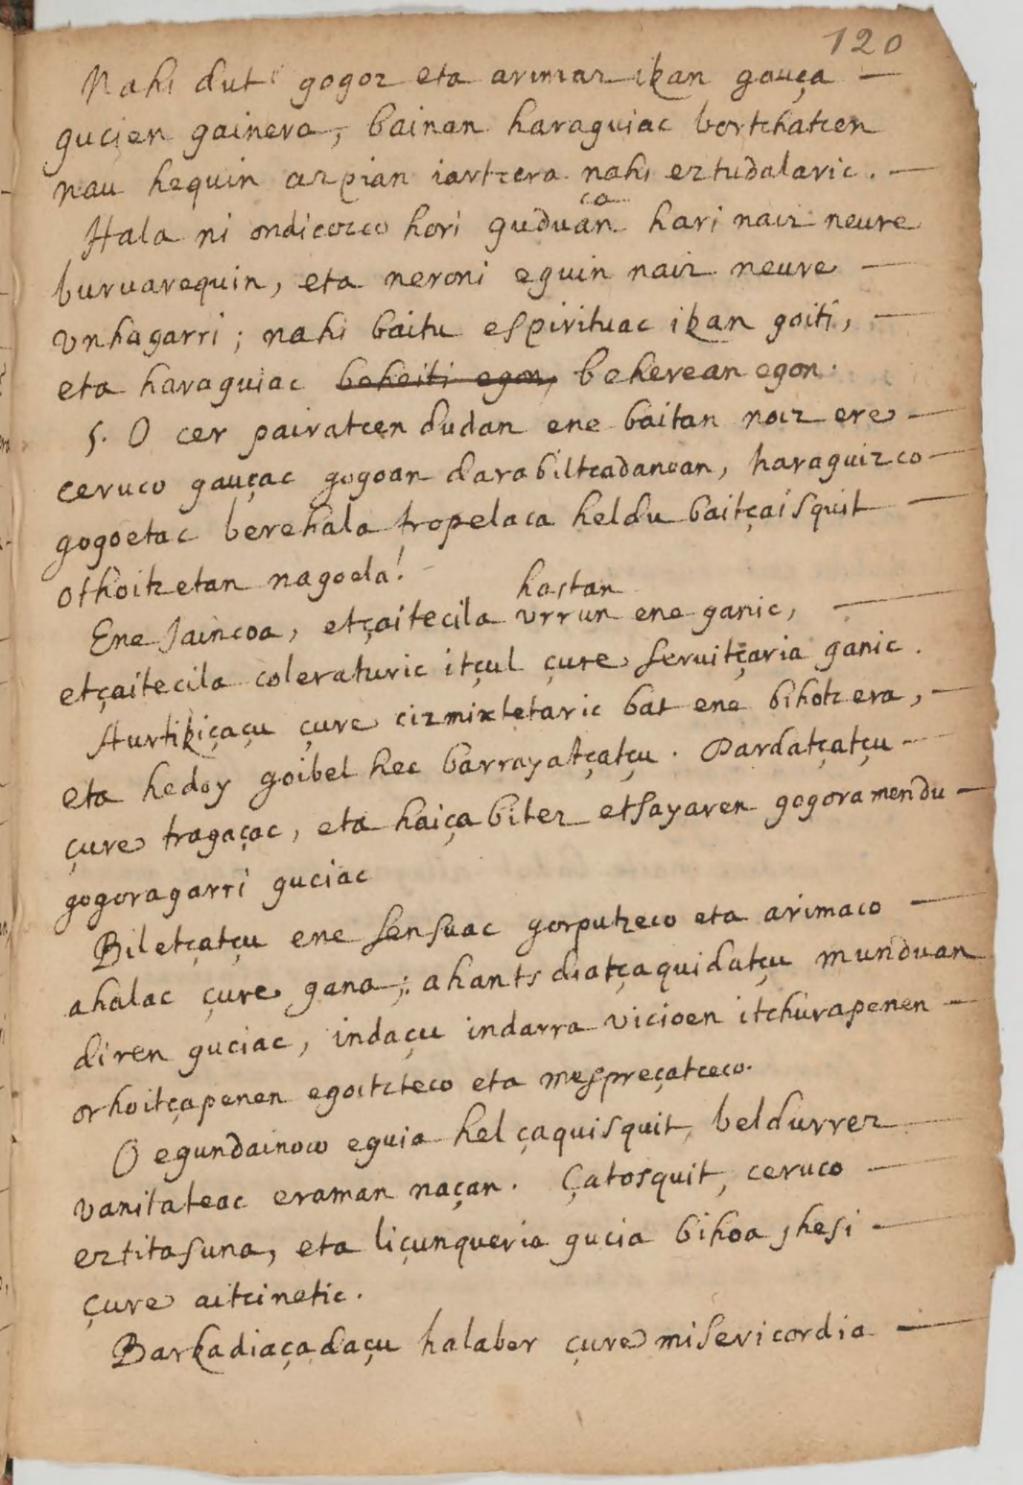 120
Nahi dut gogoz eta arimaz ikan gauça
gucien gainera, bainan haraguiac bortchatcen
nau hequin azpian iartzera nahi eztudalaric.
Hala ni ondicozco hori guduan ca hari naiz neure
buruarequin, eta neroni eguin naiz neure
vnhagarri; nahi baitu espirituac ikan goiti,
eta haraguiac beheiti egon, beherean egon.
5. O cer pairatcen dudan ene baitan noiz ere
ceruco gauçac gogoan darabiltçadancan, haraguizco
gogoetac berehala tropelaca heldu baitçaisquit
othoitzetan nagoela!
hastan
Ene Jaincoa, etçaitecila vrrun ene ganic,
etçaitecila coleraturic itçul çure seruitçaria ganic.
Aurtikiçaçu çure cizmixtetaric bat ene bihotzera,
eta hedoy goibel hec barrayatçatçu. Dardatçatçu
çure tragaçac, eta haiçabitez etsayaren gogoramendu
gogoragarri guciac
Biletçatçu ene sensuac gorputzeco eta arimaco
ahalac çure gana; ahantsdiatçaquidatçu munduan
diren guciac, indaçu indarra vicioen itchurapenen
orhoitçapenen egoitzteco eta mespreçatceco.
O egundainoco eguia hel çaquisquit, beldurrez
vanitateac eraman naçan. Çatosquit, ceruco
eztitasuna, eta liçunqueria gucia bihoa ihesi
çure aitcinetic.
Barkadiaçadaçu halaber çure misericordia